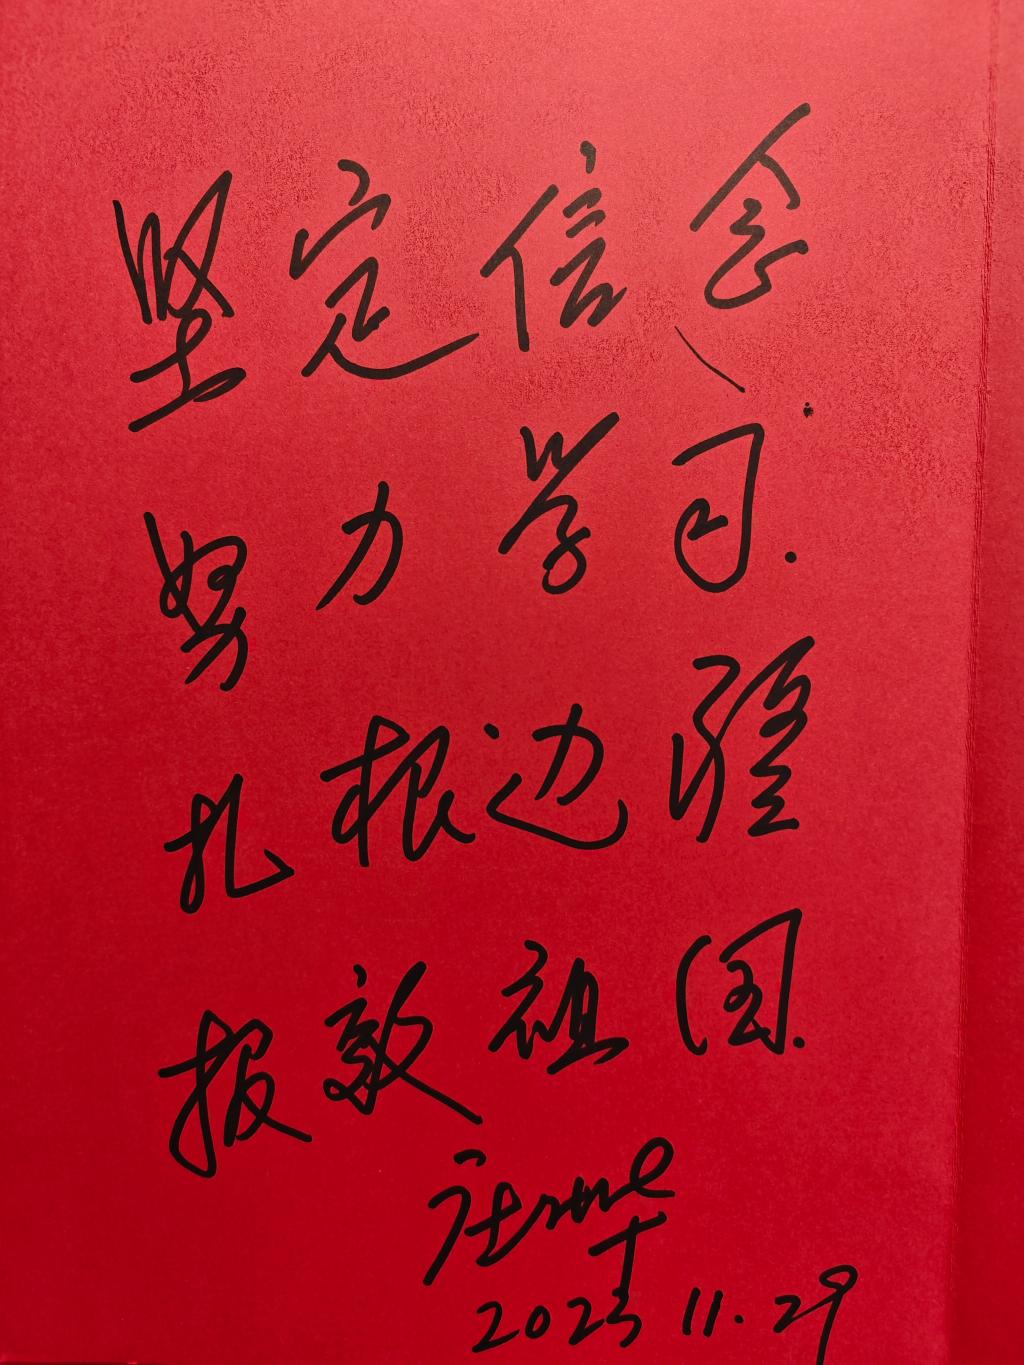 坚定信念
努力学习.
扎根边疆
报效祖国.
2023 11.29